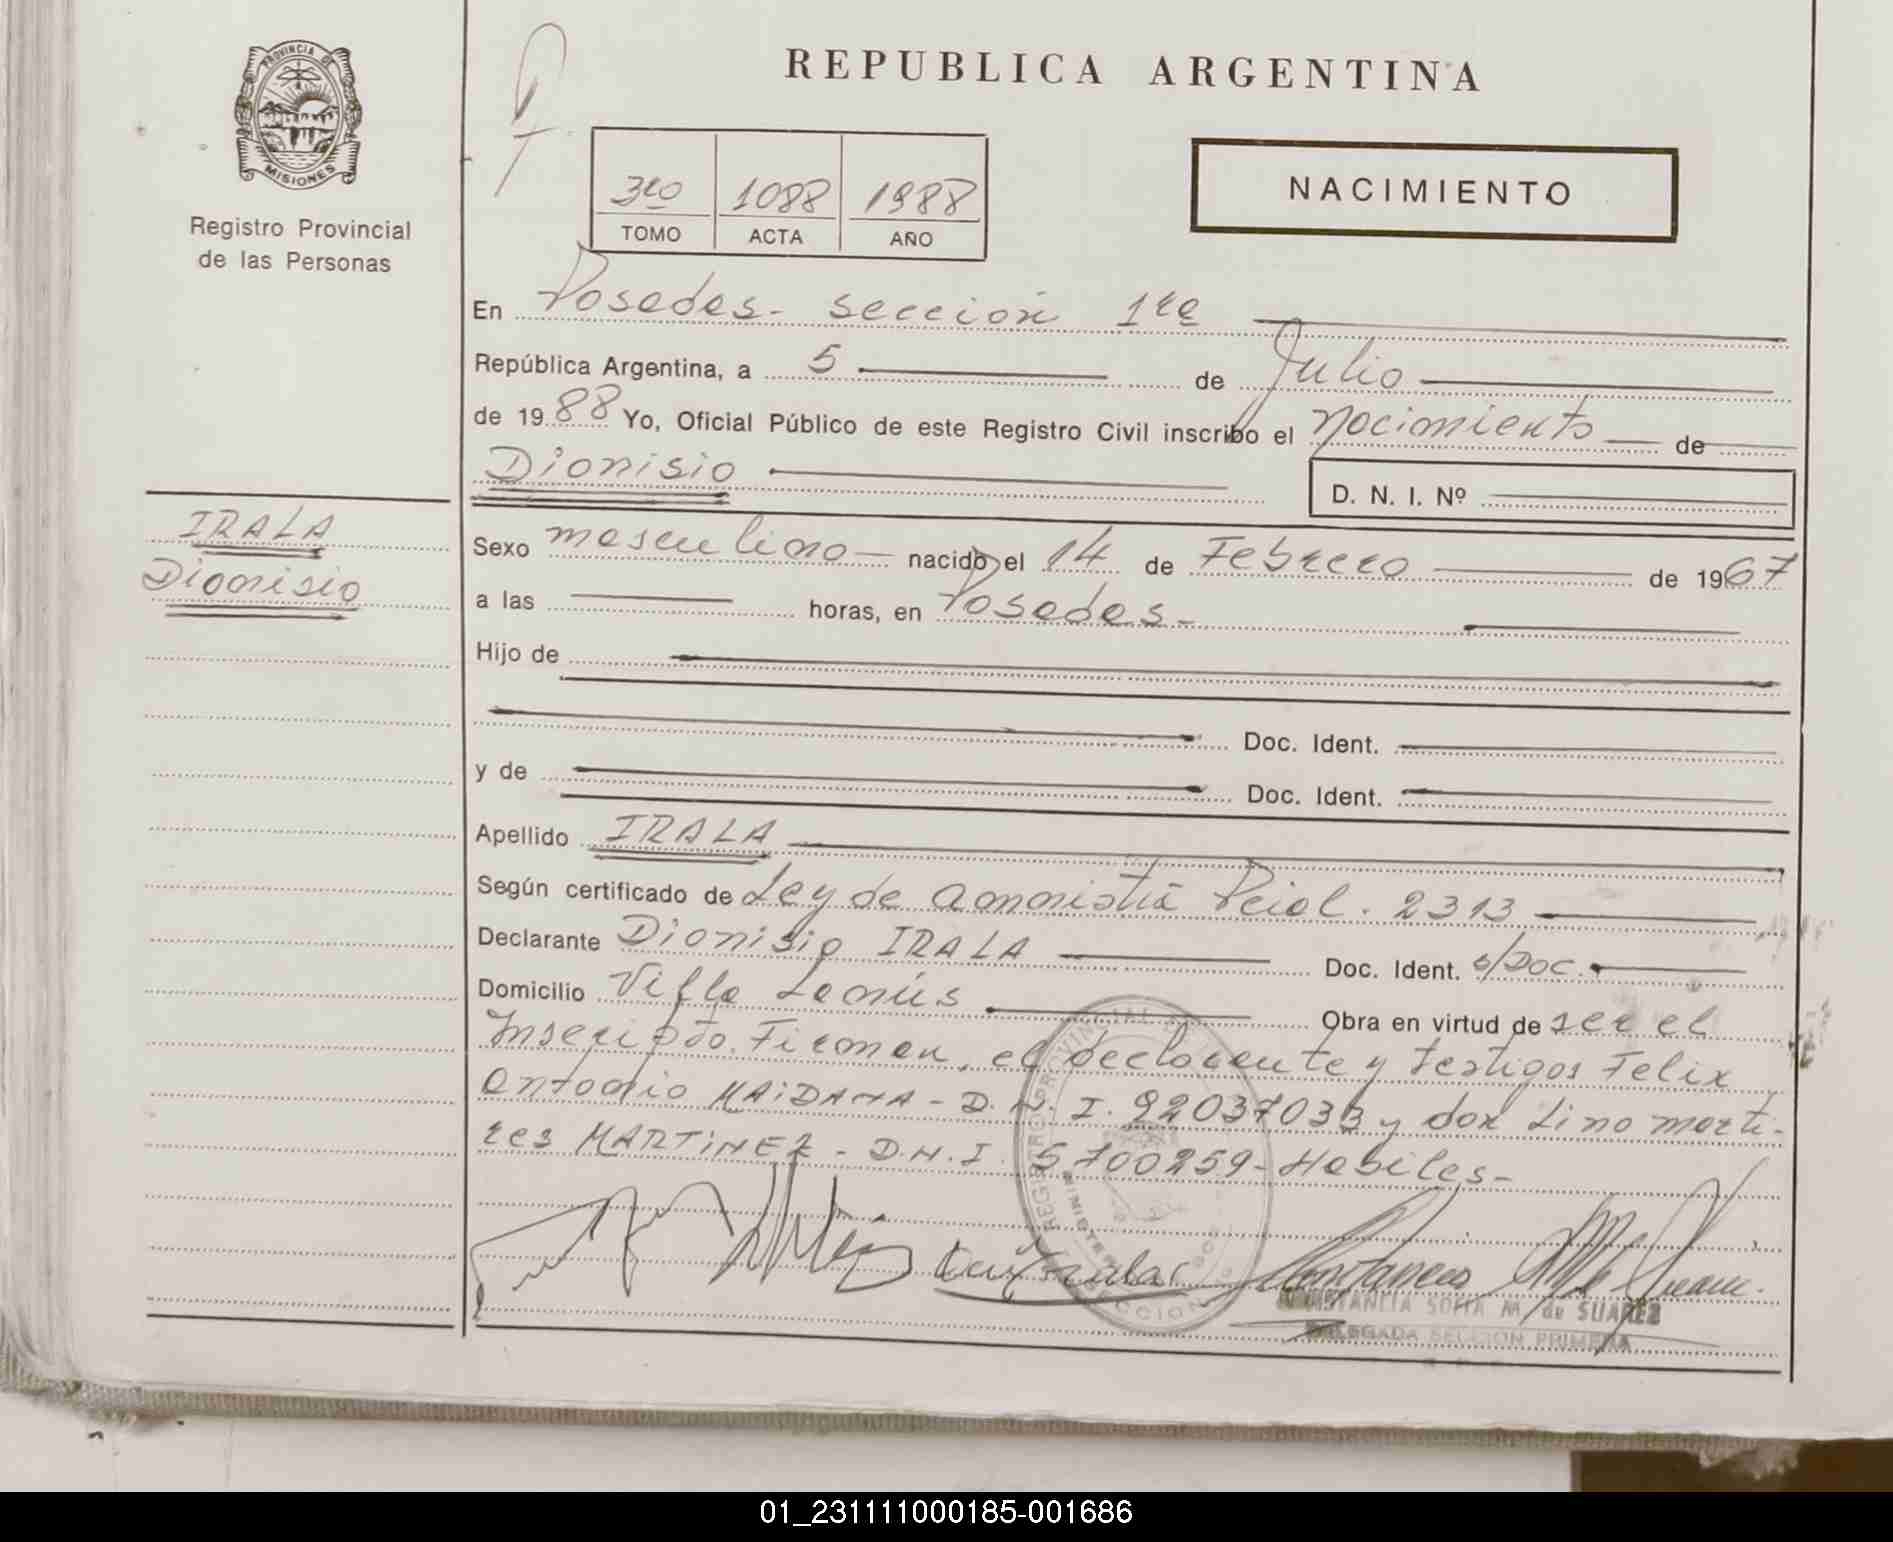 REPUBLICA ARGENTINA
PROVINCIA DE
MISIONES
Registro Provincial
de las Personas
3ro 1088 1988
TOMO ACTA AÑO
NACIMIENTO
En Posadas - sección 1ra
República Argentina, a 5 de Julio
de 1988 Yo, Oficial Público de este Registro Civil inscribo el nacimiento de
Dionisio
D. N. I. Nº
IRALA
Dionisio
Sexo masculino nacido el 14 de Febrero de 1967
a las horas, en Posadas -
Hijo de
Doc. Ident.
y de Doc. Ident.
Apellido IRALA
Según certificado de Ley de amnistía Pcial. 2313
Declarante Dionisio IRALA Doc. Ident. s/Doc.
Domicilio Villa Lanús Obra en virtud de ser el
Inscripto. Firman, el declarante y testigos Felix
Antonio MAIDANA - D.N.I. 92037033 y don Lino marti-
res MARTINEZ - D.N.I. 5700259 - Habiles -
REGISTRO PROVINCIAL
SECCION
CONSTANCIA SOFIA M. de SUAREZ
DELEGADA SECCION PRIMERA
01_231111000185-001686